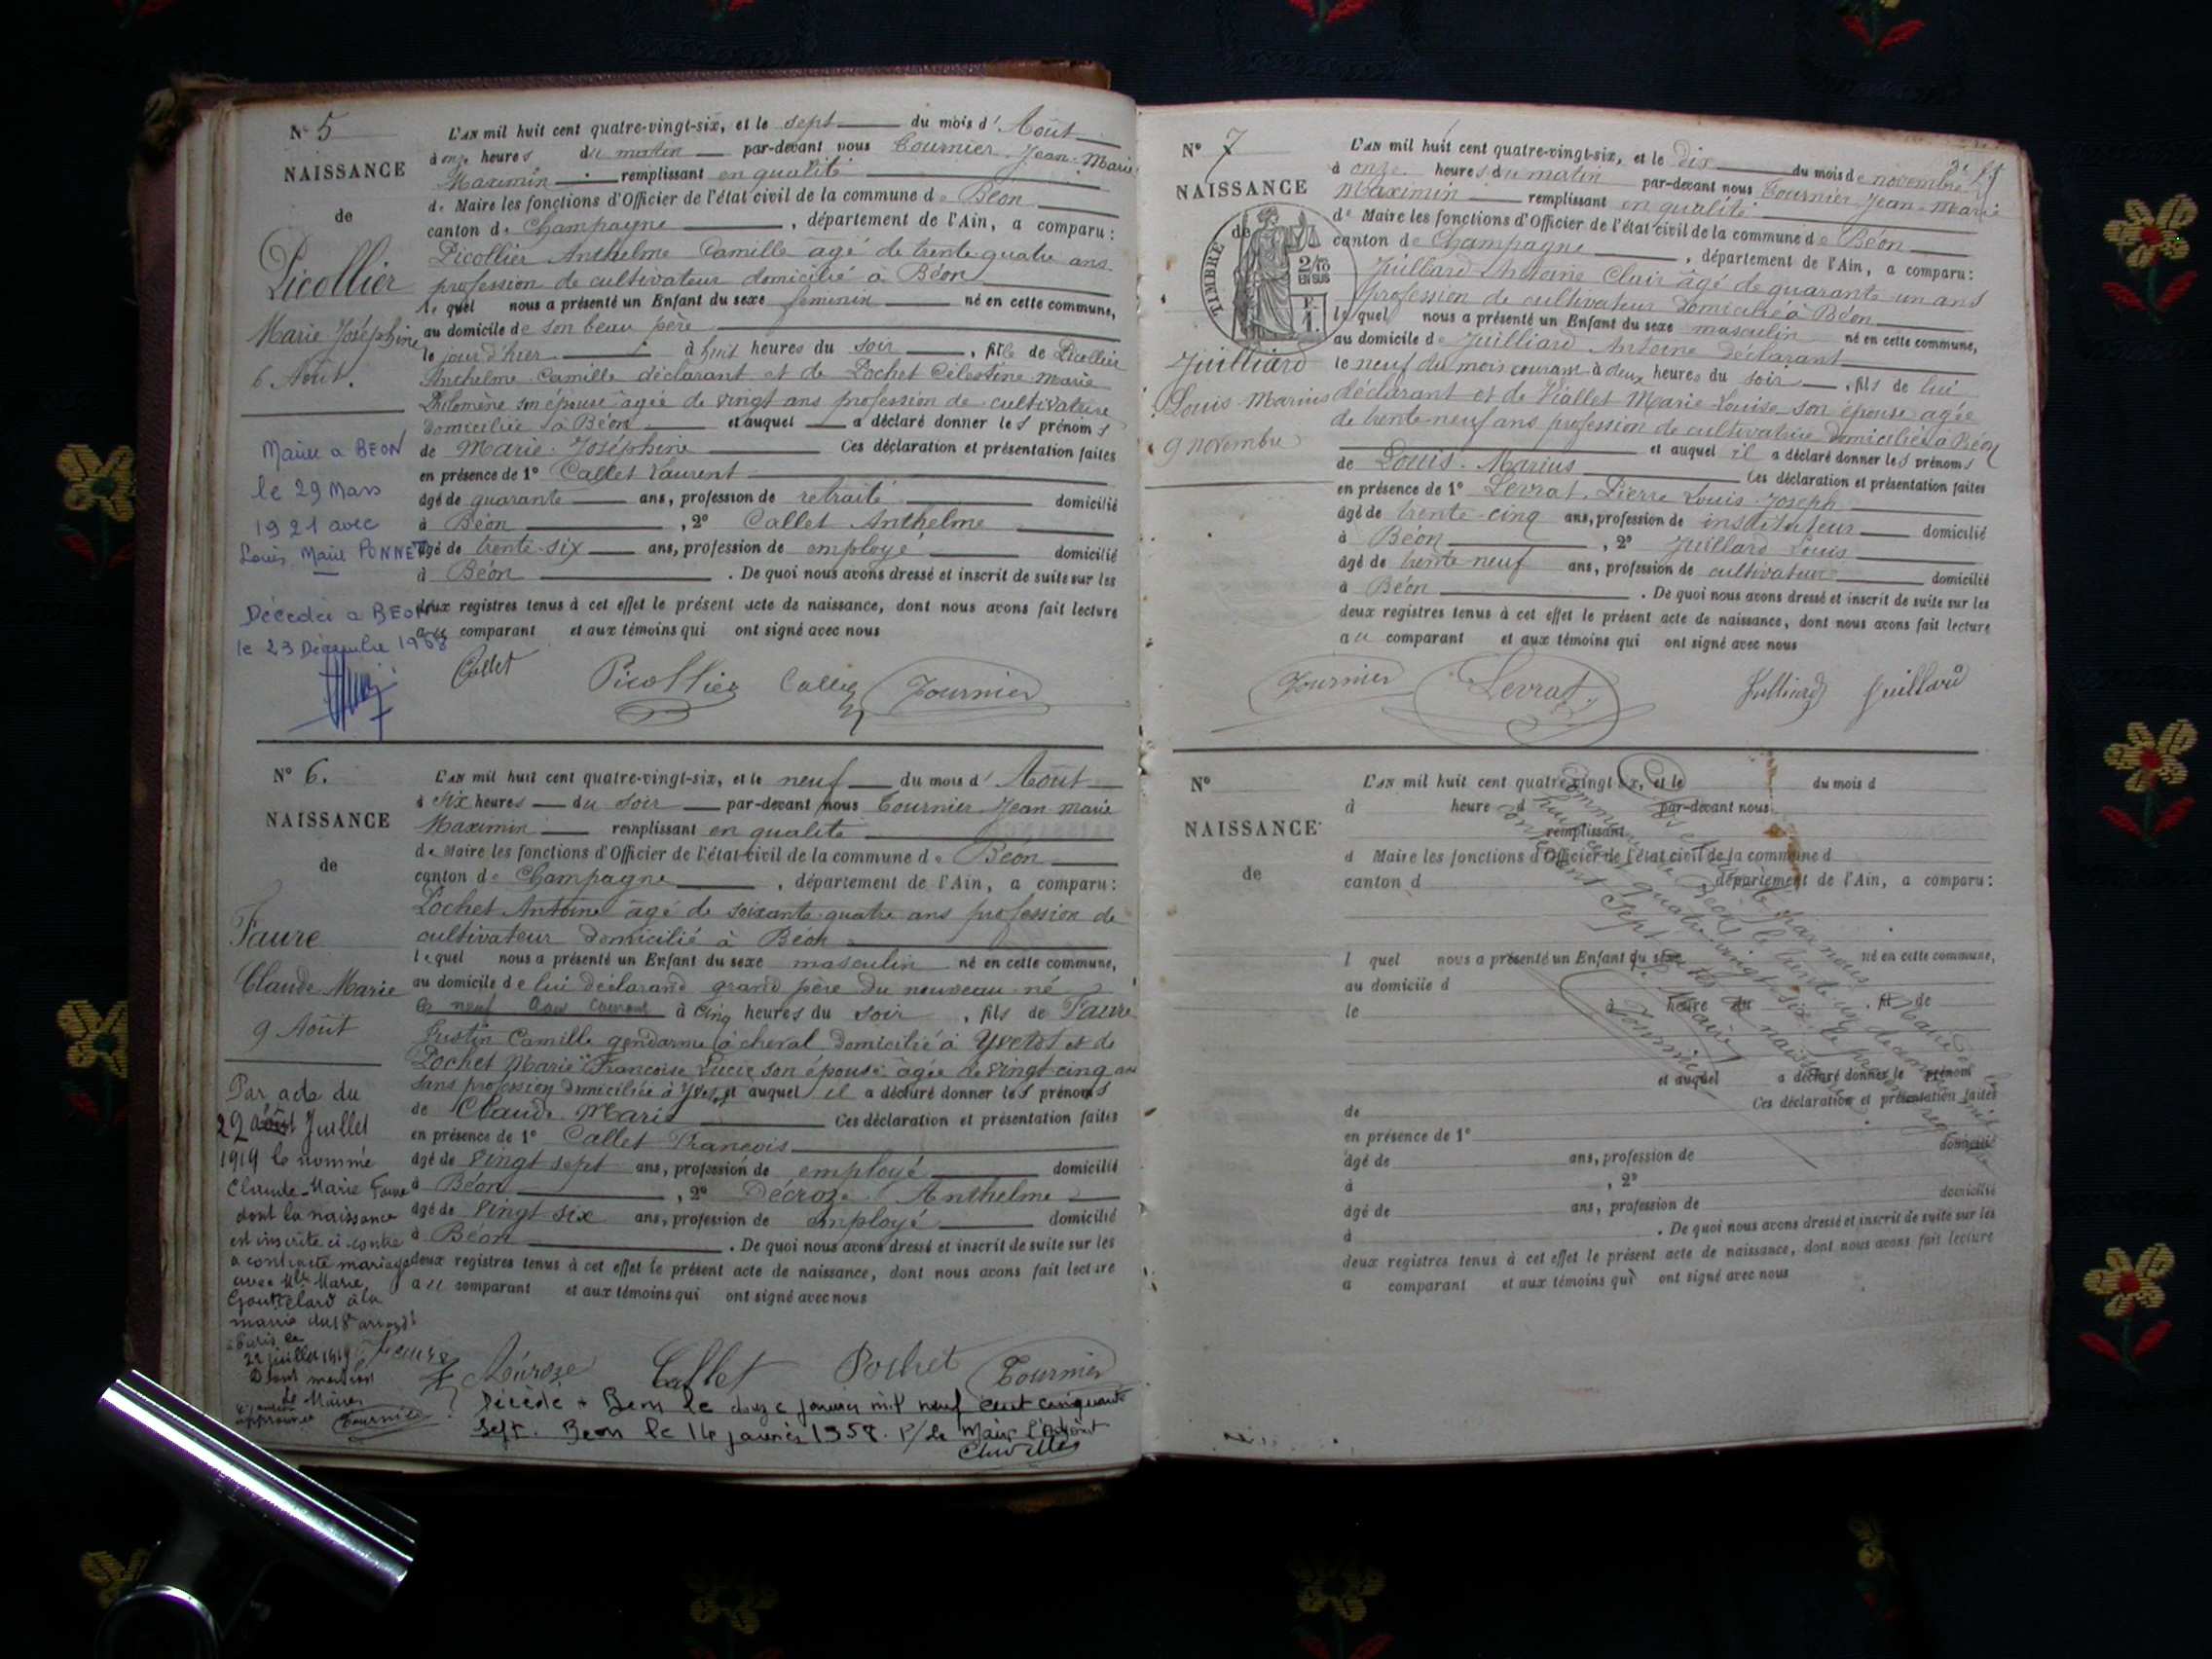 N° 5
NAISSANCE
de
Picollier
Marie Joséphine
6 Août.
Mariée a BEON
le 29 Mars
1921 avec
Louis Marie PONNET
Décédée a BEON
le 23 Décembre 1968
L'AN mil huit cent quatre-vingt-six, et le sept du mois d' Août
à onze heures du matin par-devant nous Tournier Jean-Marie
Maximin remplissant en qualité
de Maire les fonctions d'Officier de l'état civil de la commune de Béon
canton de Champagne, département de l'Ain, a comparu:
Picollier Anthelme Camille âgé de trente-quatre ans
profession de cultivateur domicilié à Béon
lequel nous a présenté un Enfant du sexe féminin né en cette commune,
au domicile de son beau père
le jour d'hier à huit heures du soir, fille de Picollier
Anthelme Camille déclarant et de Pochet Célestine Marie
Philomène son épouse âgée de vingt ans profession de cultivatrice
domiciliée à Béon et auquel a déclaré donner les prénoms
de Marie Joséphine Ces déclaration et présentation faites
en présence de 1° Callet Laurent
âgé de quarante ans, profession de retraité domicilié
à Béon, 2° Callet Anthelme
âgé de trente-six ans, profession de employé domicilié
à Béon. De quoi nous avons dressé et inscrit de suite sur les
deux registres tenus à cet effet le présent acte de naissance, dont nous avons fait lecture
comparant et aux témoins qui ont signé avec nous
Callet Picollier Callet Tournier
N° 6.
NAISSANCE
de
Faure
Claude Marie
9 Août
Par acte du
22 août Juillet
1919 le nommé
Claude-Marie Faure
dont la naissance
est inscrite ci-contre
a contracté mariage
avec Mlle Marie
à la
mairie du 18e arrondt
à Paris, le
22 juillet 1919
Dont mention
Le Maire
Tournier
L'AN mil huit cent quatre-vingt-six, et le neuf du mois d' Août
à six heures du soir par-devant nous Tournier Jean Marie
Maximin remplissant en qualité
de Maire les fonctions d'Officier de l'état civil de la commune de Béon
canton de Champagne, département de l'Ain, a comparu:
Pochet Antoine âgé de soixante-quatre ans profession de
cultivateur domicilié à Béon
lequel nous a présenté un Enfant du sexe masculin né en cette commune,
au domicile de lui déclarand grand père du nouveau-né
le neuf Août courant à cinq heures du soir, fils de Faure
Justin Camille gendarme à cheval domicilié à Yvetot et de
Pochet Marie Francoise Lucie son épouse âgée de vingt-cinq ans
sans profession domiciliée à Yvetot et auquel il a déclaré donner les prénoms
de Claude Marie Ces déclaration et présentation faites
en présence de 1° Callet François
âgé de vingt sept ans, profession de employé domicilié
à Béon, 2° Décroze Anthelme
âgé de vingt-six ans, profession de employé domicilié
à Béon. De quoi nous avons dressé et inscrit de suite sur les
deux registres tenus à cet effet le présent acte de naissance, dont nous avons fait lecture
au comparant et aux témoins qui ont signé avec nous
Décroze Callet Pochet Tournier
Décédé à Beon le douze janvier mil neuf cent cinquante
sept. Beon le 14 janvier 1957. P/ Le Maire l'Adjoint
N° 7
NAISSANCE
de
TIMBRE
2/10
EN SUS
F.
1.
Juilliard
Louis Marius
9 novembre
L'AN mil huit cent quatre-vingt-six, et le dix du mois de novembre
à onze heures du matin par-devant nous Tournier Jean-Marie
Maximin remplissant en qualité
de Maire les fonctions d'Officier de l'état civil de la commune de Béon
canton de Champagne, département de l'Ain, a comparu:
Juilliard Antoine Clair âgé de quarante-un ans
profession de cultivateur domicilié à Béon
lequel nous a présenté un Enfant du sexe masculin né en cette commune,
au domicile de Juilliard Antoine déclarant
le neuf du mois courant à deux heures du soir, fils de lui
déclarant et de Viallet Marie Louise son épouse agée
de trente-neuf ans profession de cultivatrice domiciliée à Béon
et auquel il a déclaré donner les prénoms
de Louis-Marius Ces déclaration et présentation faites
en présence de 1° Levrat Pierre Louis Joseph
âgé de trente-cinq ans, profession de instituteur domicilié
à Béon, 2° Juillard Louis
âgé de trente-neuf ans, profession de cultivateur domicilié
à Béon. De quoi nous avons dressé et inscrit de suite sur les
deux registres tenus à cet effet le présent acte de naissance, dont nous avons fait lecture
au comparant et aux témoins qui ont signé avec nous
Tournier Levrat Juilliard Juillard
N°
NAISSANCE
de
L'AN mil huit cent quatre-vingt-six, et le du mois d
à heure d par-devant nous
remplissant
d Maire les fonctions d'Officier de l'état civil de la commune d
canton d département de l'Ain, a comparu:
l quel nous a présenté un Enfant du sexe né en cette commune,
au domicile d
le à heure du , fil de
et auquel a déclaré donner le prénom
de Ces déclaration et présentation faites
en présence de 1°
âgé de ans, profession de domicilié
à , 2°
âgé de ans, profession de domicilié
à . De quoi nous avons dressé et inscrit de suite sur les
deux registres tenus à cet effet le présent acte de naissance, dont nous avons fait lecture
a comparant et aux témoins qui ont signé avec nous
Clos et arrêté par nous Maire de la
commune de Béon le trente un décembre mil
huit cent quatre-vingt-six, le présent registre
contenant sept actes de naissance
Le Maire
Tournier